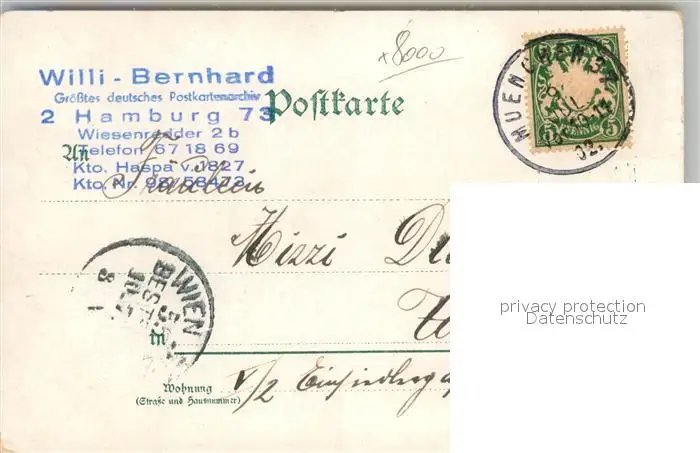 x8000
Willi - Bernhard
Größtes deutsches Postkartenarchiv
2 Hamburg 73
Wiesenredder 2 b
Telefon 67 18 69
Kto. Haspa v. 1827
Kto. Nr. 98/58473
Postkarte
MUENCHEN
02.
PFENNIG
5 5
An
Fräulein
Mizzi
WIEN
BEST
8
in
privacy protection
Datenschutz
Wohnung
(Straße und Hausnummer)
V/2 Einsiedlerg